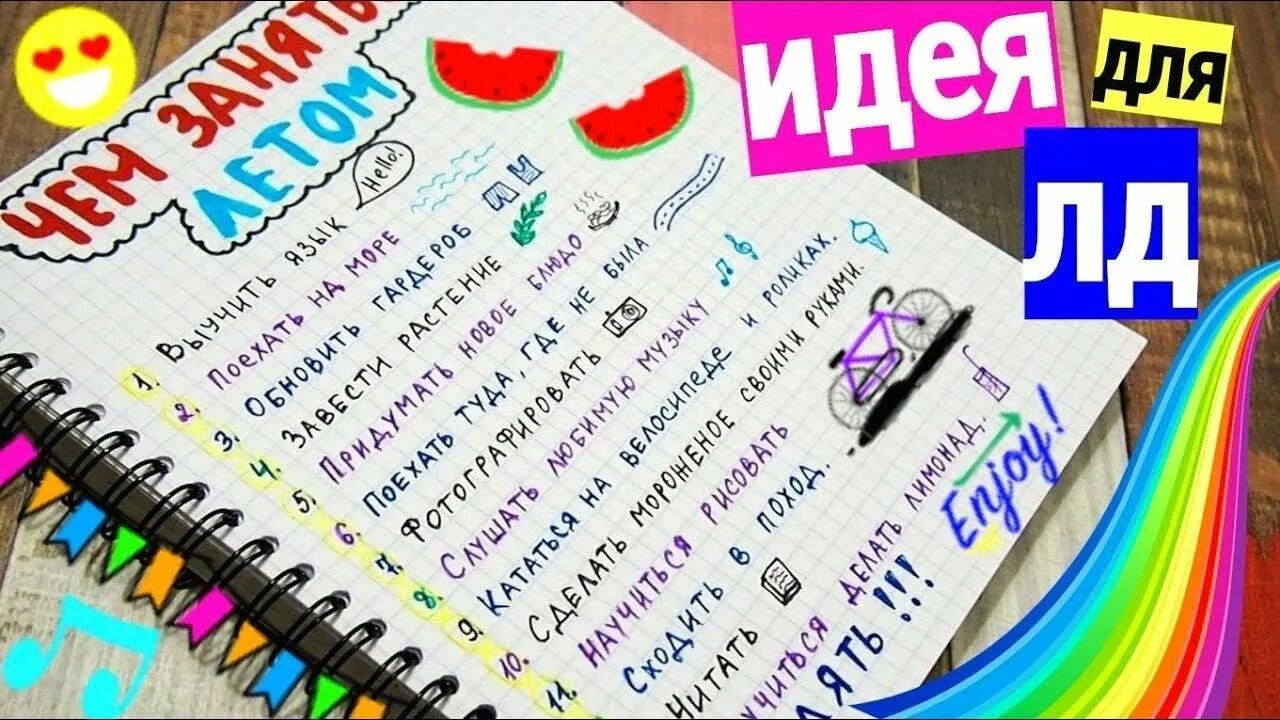 ЧЕМ ЗАНЯТЬ
ЛЕТОМ
Hello!
1. Выучить язык
2. Поехать на море
3. Обновить гардероб
4. Завести растение
5. Придумать новое блюдо
6. Поехать туда, где не была
7. Фотографировать
8. Слушать любимую музыку
9. Кататься на велосипеде и роликах.
10. Сделать мороженое своими руками.
11. Научиться рисовать
Сходить в поход.
Читать
учиться делать лимонад.
лять!!!
Enjoy!
ИДЕЯ
ДЛЯ
ЛД